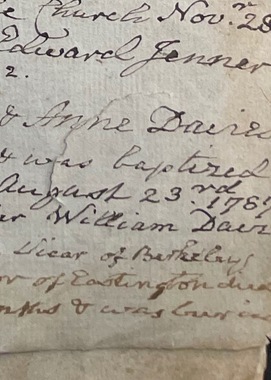 Church Nov.r 28
Edward Jenner
2.
& Anne Davies
& was baptized
August 23.rd 178
William Davi
Vicar of Berkeley
of Eastington
& was buried